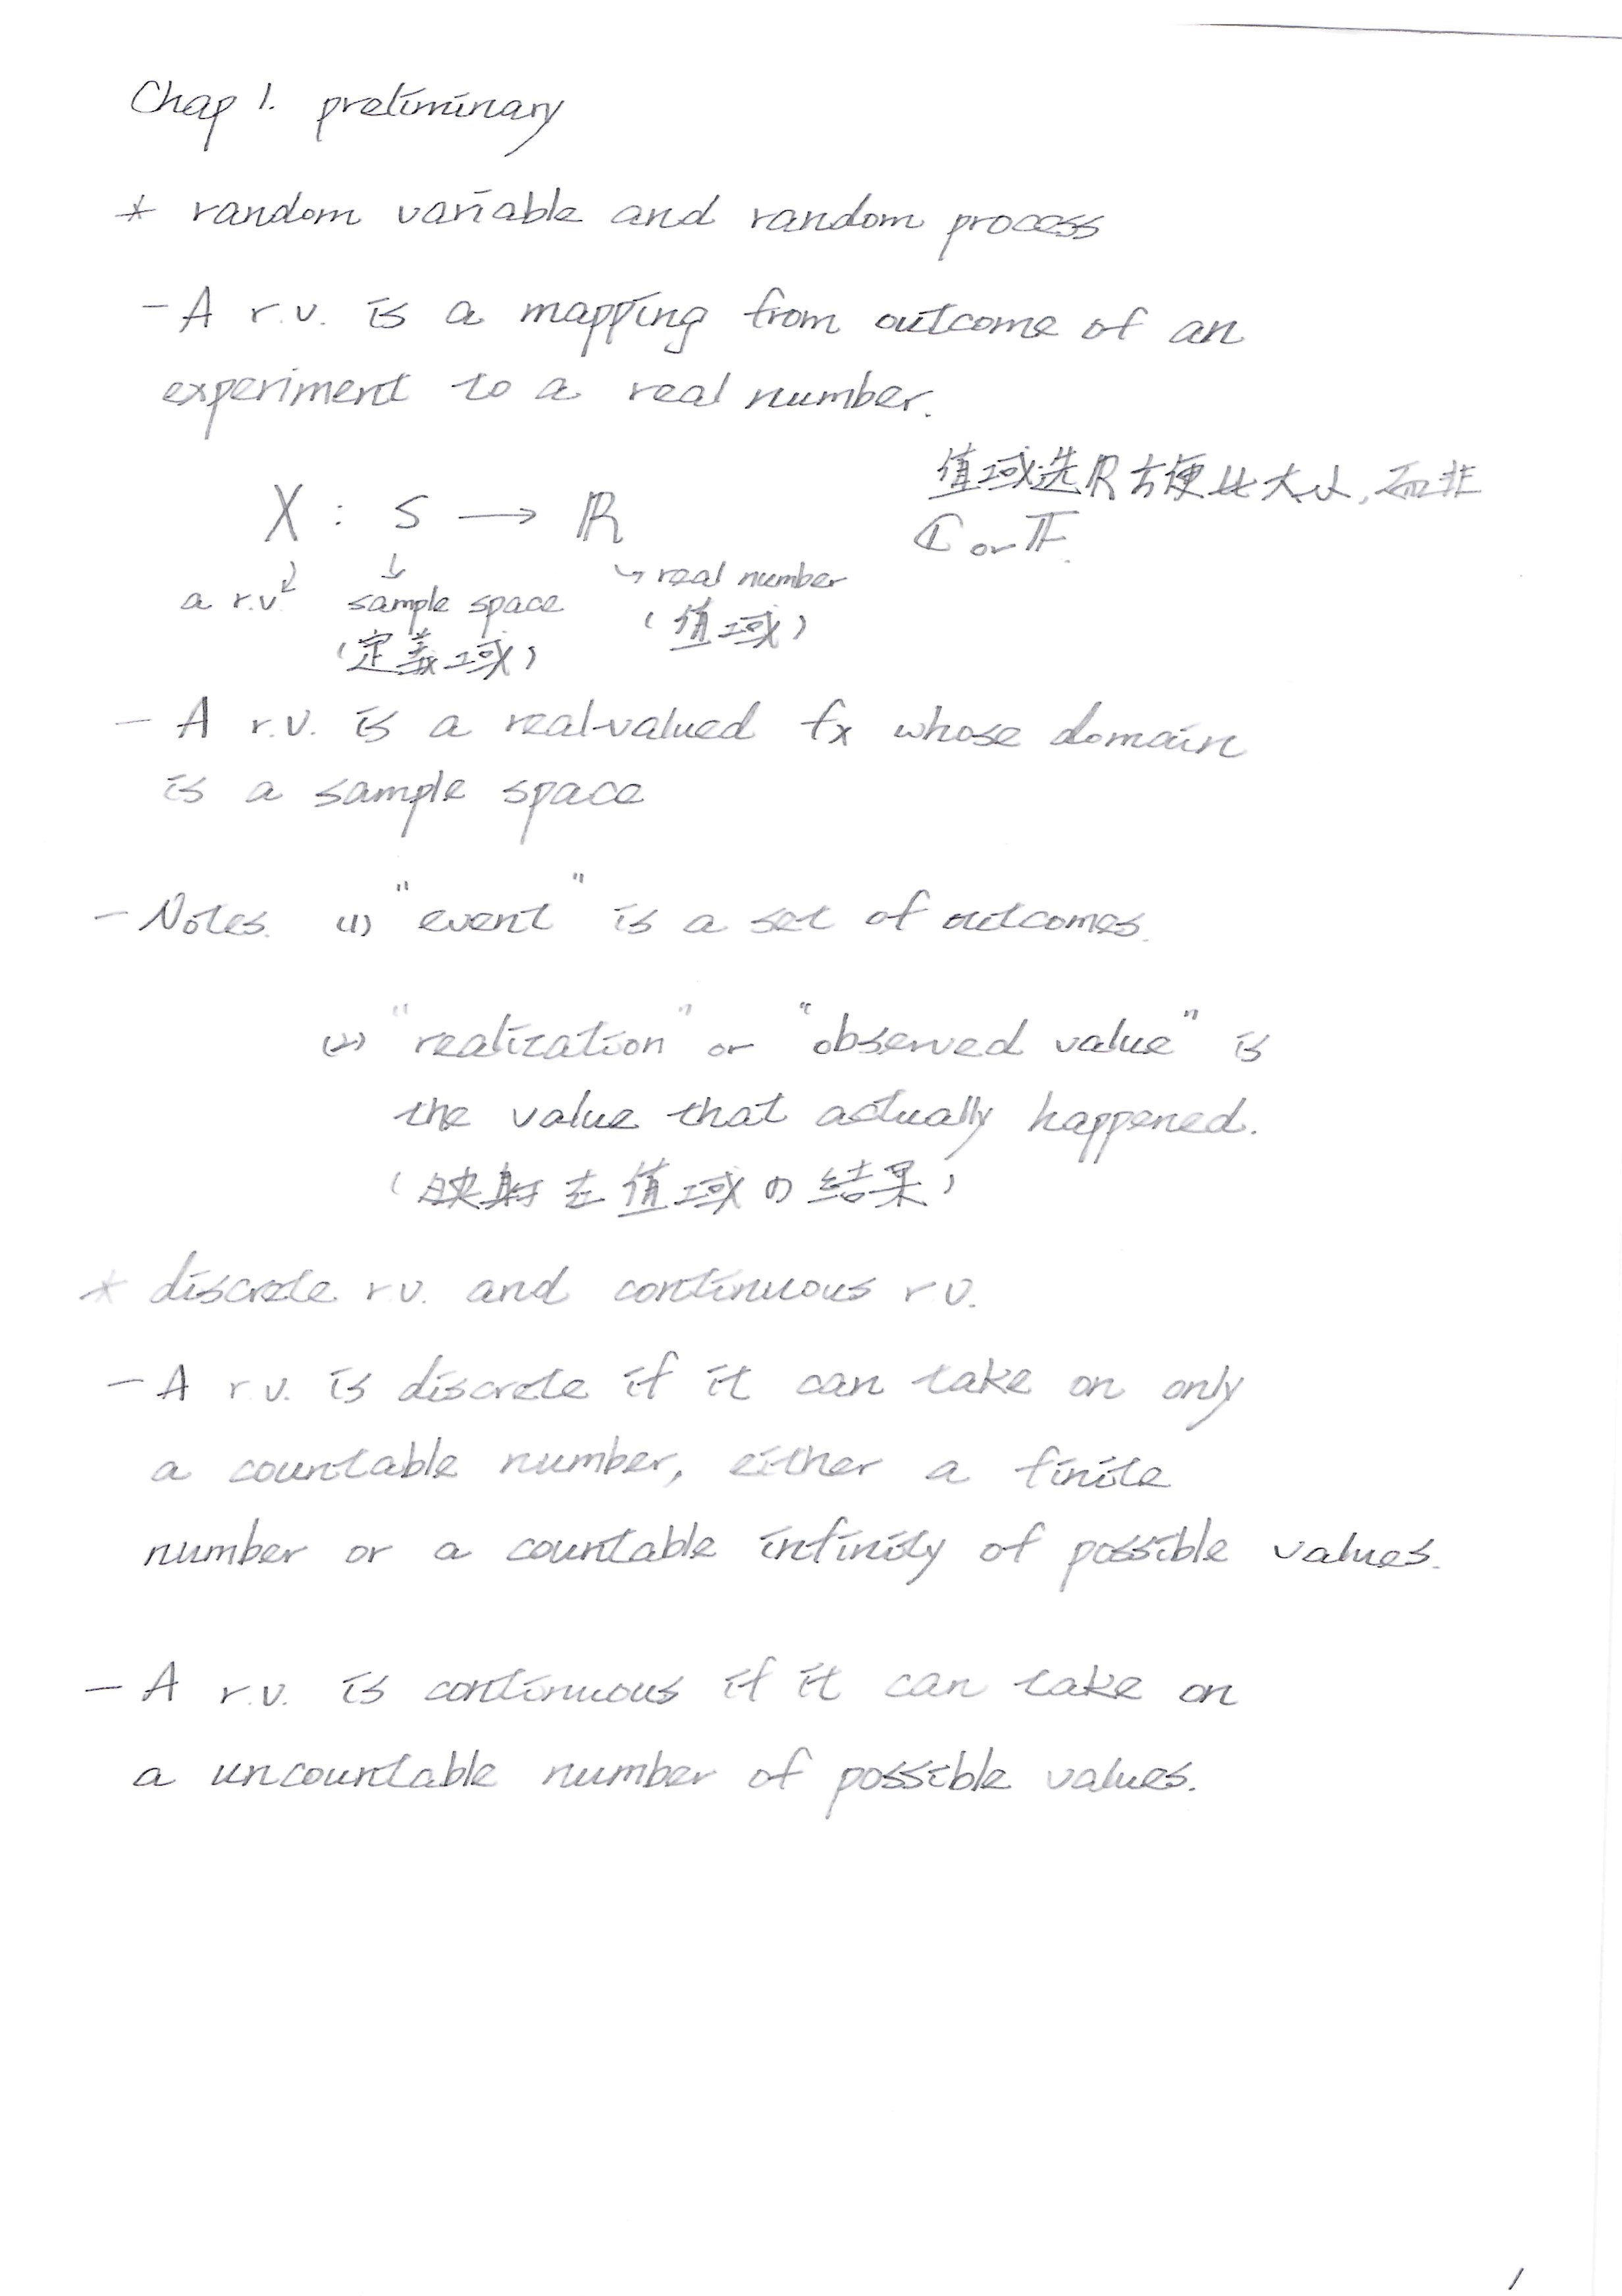 Chap 1. preliminary
* random variable and random process
- A r.v. is a mapping from outcome of an
experiment to a real number.
值域选ℝ方便比大小,而非
ℂ or 𝔽.
X : S → ℝ
a r.v. sample space real number
(定義域) (值域)
- A r.v. is a real-valued fx whose domain
is a sample space
- Notes. (1) "event" is a set of outcomes.
(2) "realization" or "observed value" is
the value that actually happened.
(映射在值域の结果)
* discrete r.v. and continuous r.v.
- A r.v. is discrete if it can take on only
a countable number, either a finite
number or a countable infinity of possible values.
- A r.v. is continuous if it can take on
a uncountable number of possible values.
1